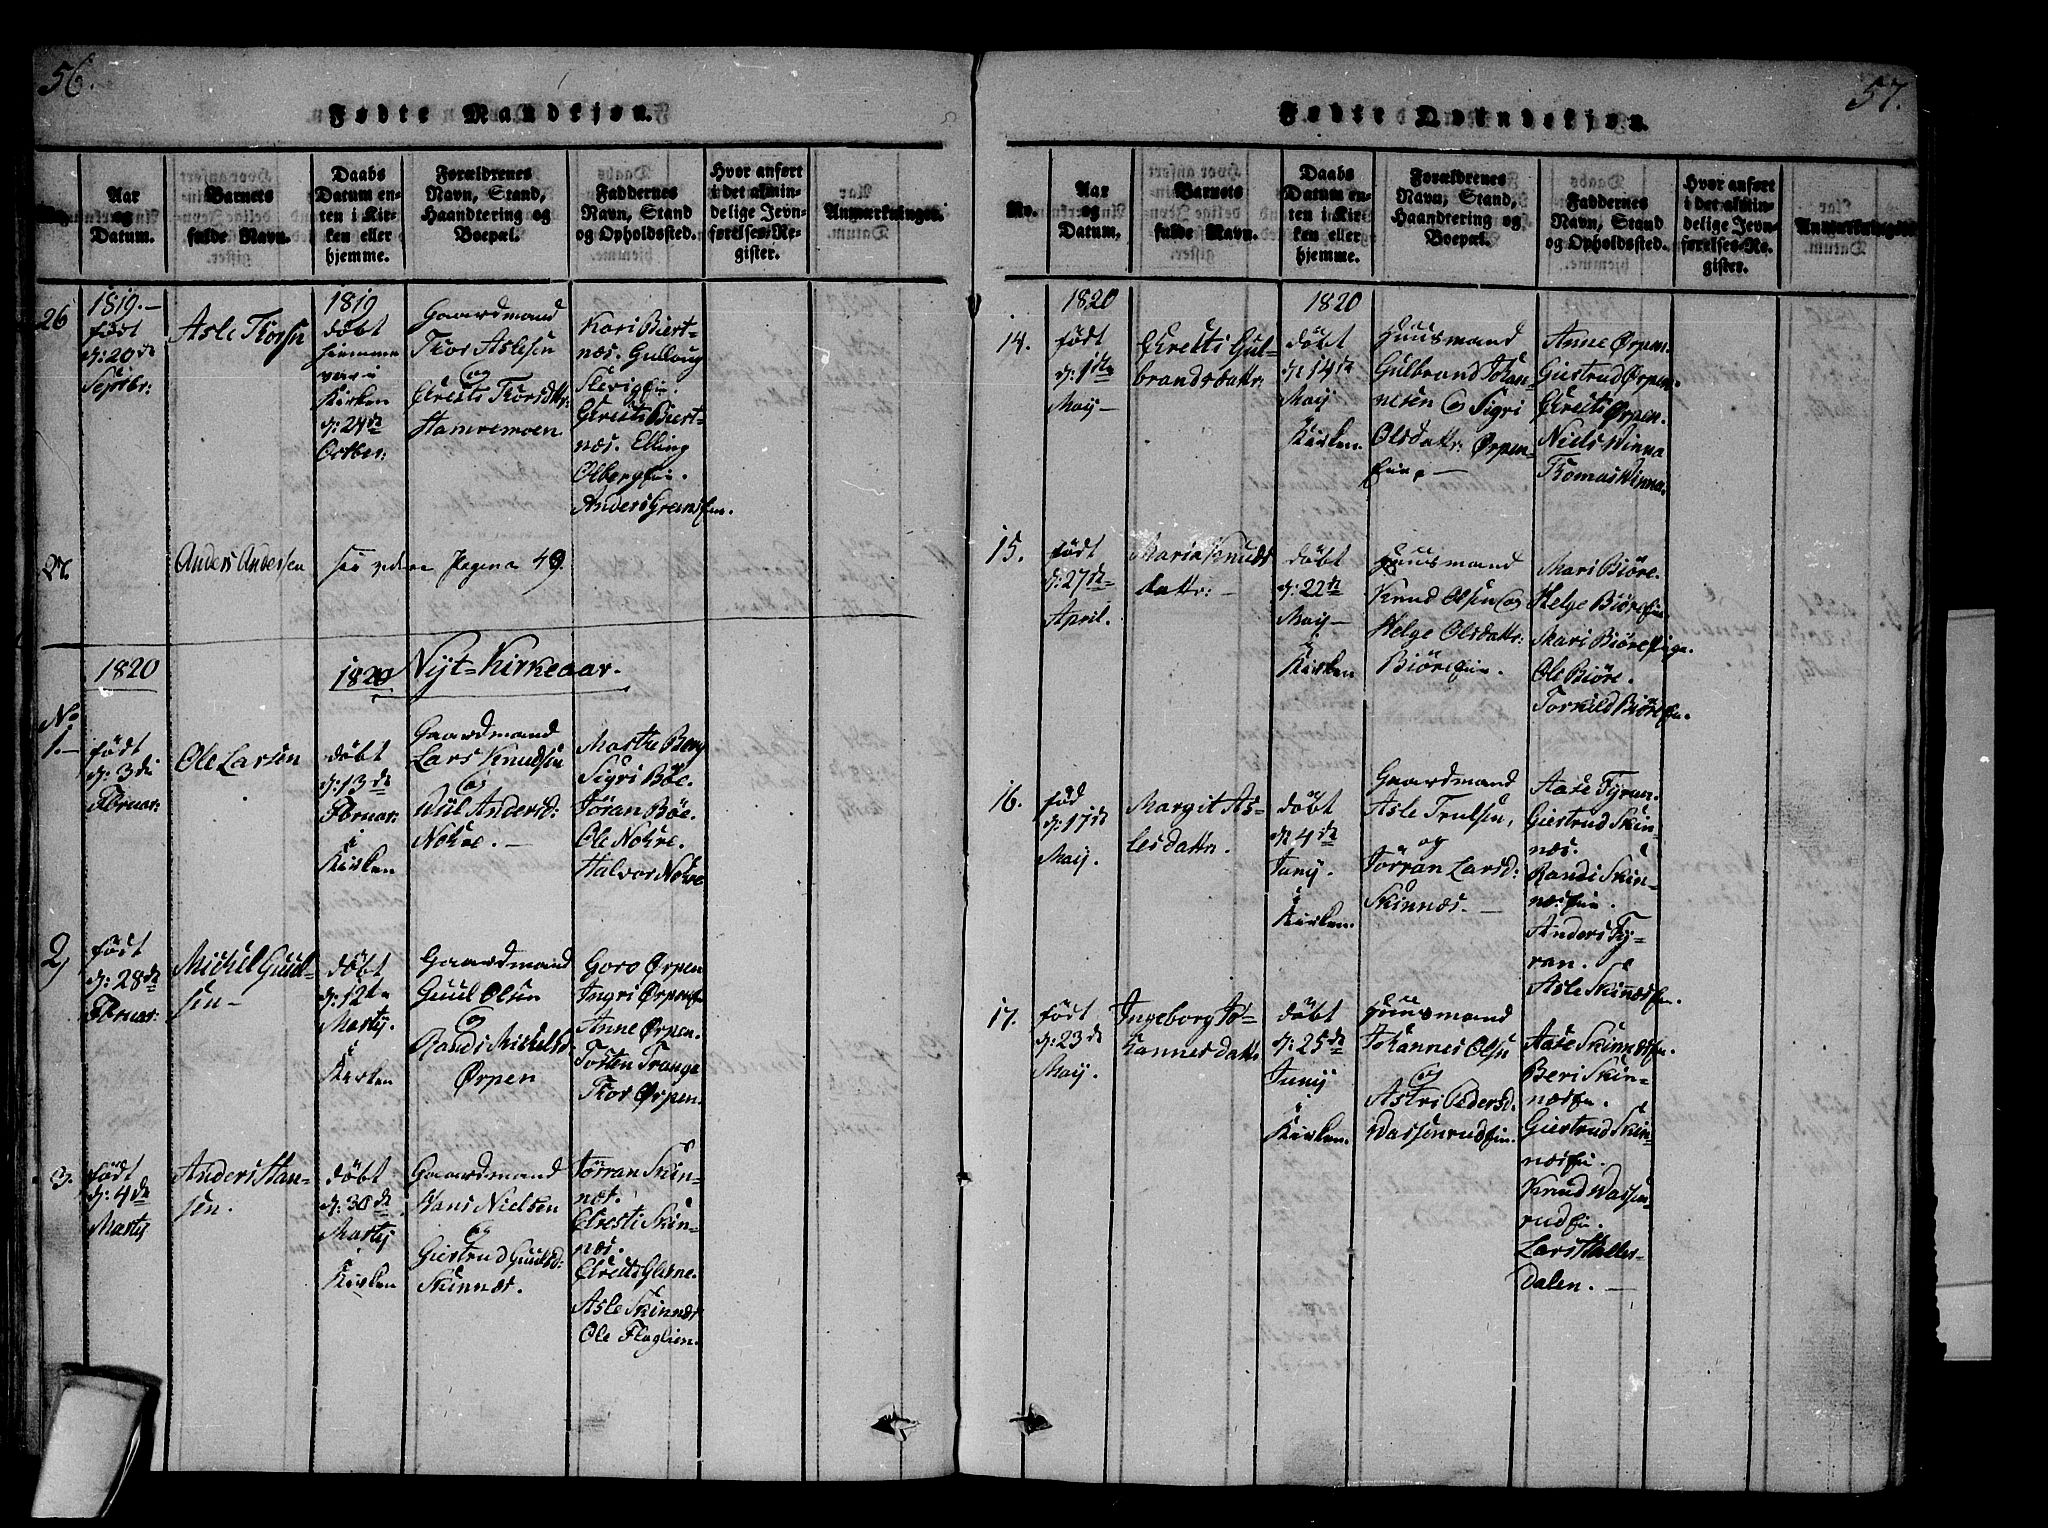 56.
Fødte Mandkjøn.
No.
Aar
og
Datum.
Barnets
fulde Navn.
Daabs
Datum en-
ten i Kir-
ken eller
hjemme.
Forældrenes
Navn, Stand,
Haandtering og
Boepæl.
Faddernes
Navn, Stand
og Opholdssted.
Hvor anført
i det almin-
delige Jevn-
førelses-Re-
gister.
Anmærkninger.
26
1819.—
født
d: 20de
Septbr:
Asle Thorsen
1819
döbt
hiemme
var i
Kirken
d: 24de
Octber:
Gaardmand
Thor Aslesen
og
Thorsdtr:
Hamremoen
Kari Biert-
næs. Gulloug
Biert-
næs. Elling
Olbergein.
Anders
27.
Anders Andersen
see vedere Pagina 49.
1820
1820
Nyt=Kirkeaar.
No
1.—
født
d: 3de
Februar:
Ole Larsen
döbt
d: 13de
Februar:
i
Kirken
Gaardmand
Lars Knudsen
og
Andersd:
Nokre.—
Marthe Berg
Sigri Böe.
Jöran Böe.
Ole Nokre.
Halvor Nokre
2)
født
d: 28de
Februar:
Michel Guul-
sen—
döbt
d: 12te
Martij.
i
Kirken
Gaardmand
Guul Olsen
og
Randi Michelsd:
Ørpen
Goro Ørpen
Ingri Ørpen
Anne Ørpen.
Tosten Trange
Thor Ørpen.
3.
født
d: 4de
Martij
Anders Han-
sen.
döbt
d: 30de
Martij
i
Kirken
Gaardmand
Hans Nielsen
og
Giertrud Guulsd:
Skinnæs.
Jörran Skin-
næs.
Skin-
næs.
Glesne.
Asle Skinnæs
Ole Flaglien.
57.
Fødte Qvindekjøn.
No.
Aar
og
Datum.
Barnets
fulde Navn.
Daabs
Datum en-
ten i Kir-
ken eller
hjemme.
Forældrenes
Navn, Stand,
Haandtering og
Boepæl.
Faddernes
Navn, Stand
og Opholdssted.
Hvor anført
i det almin-
delige Jevn-
førelses-Re-
gister.
Anmærkninger.
14.
1820
født
d: 1ste
Maij—
Gul-
brandsdattr:
1820
döbt
d: 14de
Maij
i
Kirken.
Huusmand
Gulbrand Johan-
nesen og Sigri
Olsdattr: Ørpen-
Anne Ørpen.
Giertrud Ørpen.
Ørpen.
Niels Winna
Thomas Winna.
15.
født
d: 27de
April.
Maria Knuds
dattr:—
döbt
d: 22de
Maij—
i
Kirken
Huusmand
Knud Olsen og
Helge Olsdattr:
Biöreeie.
Mari Biöre.
Helge Biöreeie
Mari Biöre
Ole Biöre.
Torkild Biöreeie.
16.
død
d: 17de
Maij.
Margit As-
lesdattr.
döbt
d: 4de
Junij.
i
Kirken.
Gaardmand
Asle Trulsen,
og
Jörran Larsd:
Skinnæs.—
Aase Fyran.
Giertrud Skin-
næs.
Randi Skin-
næseie.
Anders Fy-
ran.
Asle Skinnæseie.
17.
født
d: 23de
Maij.
Ingeborg Jo-
hannesdattr
döbt
d: 25de
Junij
i
Kirken.
Huusmand
Johannes Olsen
og
Astri Pedersd.
Wassenrudeie.
Aase Skinnæseie.
Beri Skin-
næseie.
Giertrud Skin-
næseie.
Knud Wassen-
rudeie.
Lars
Dalen.—